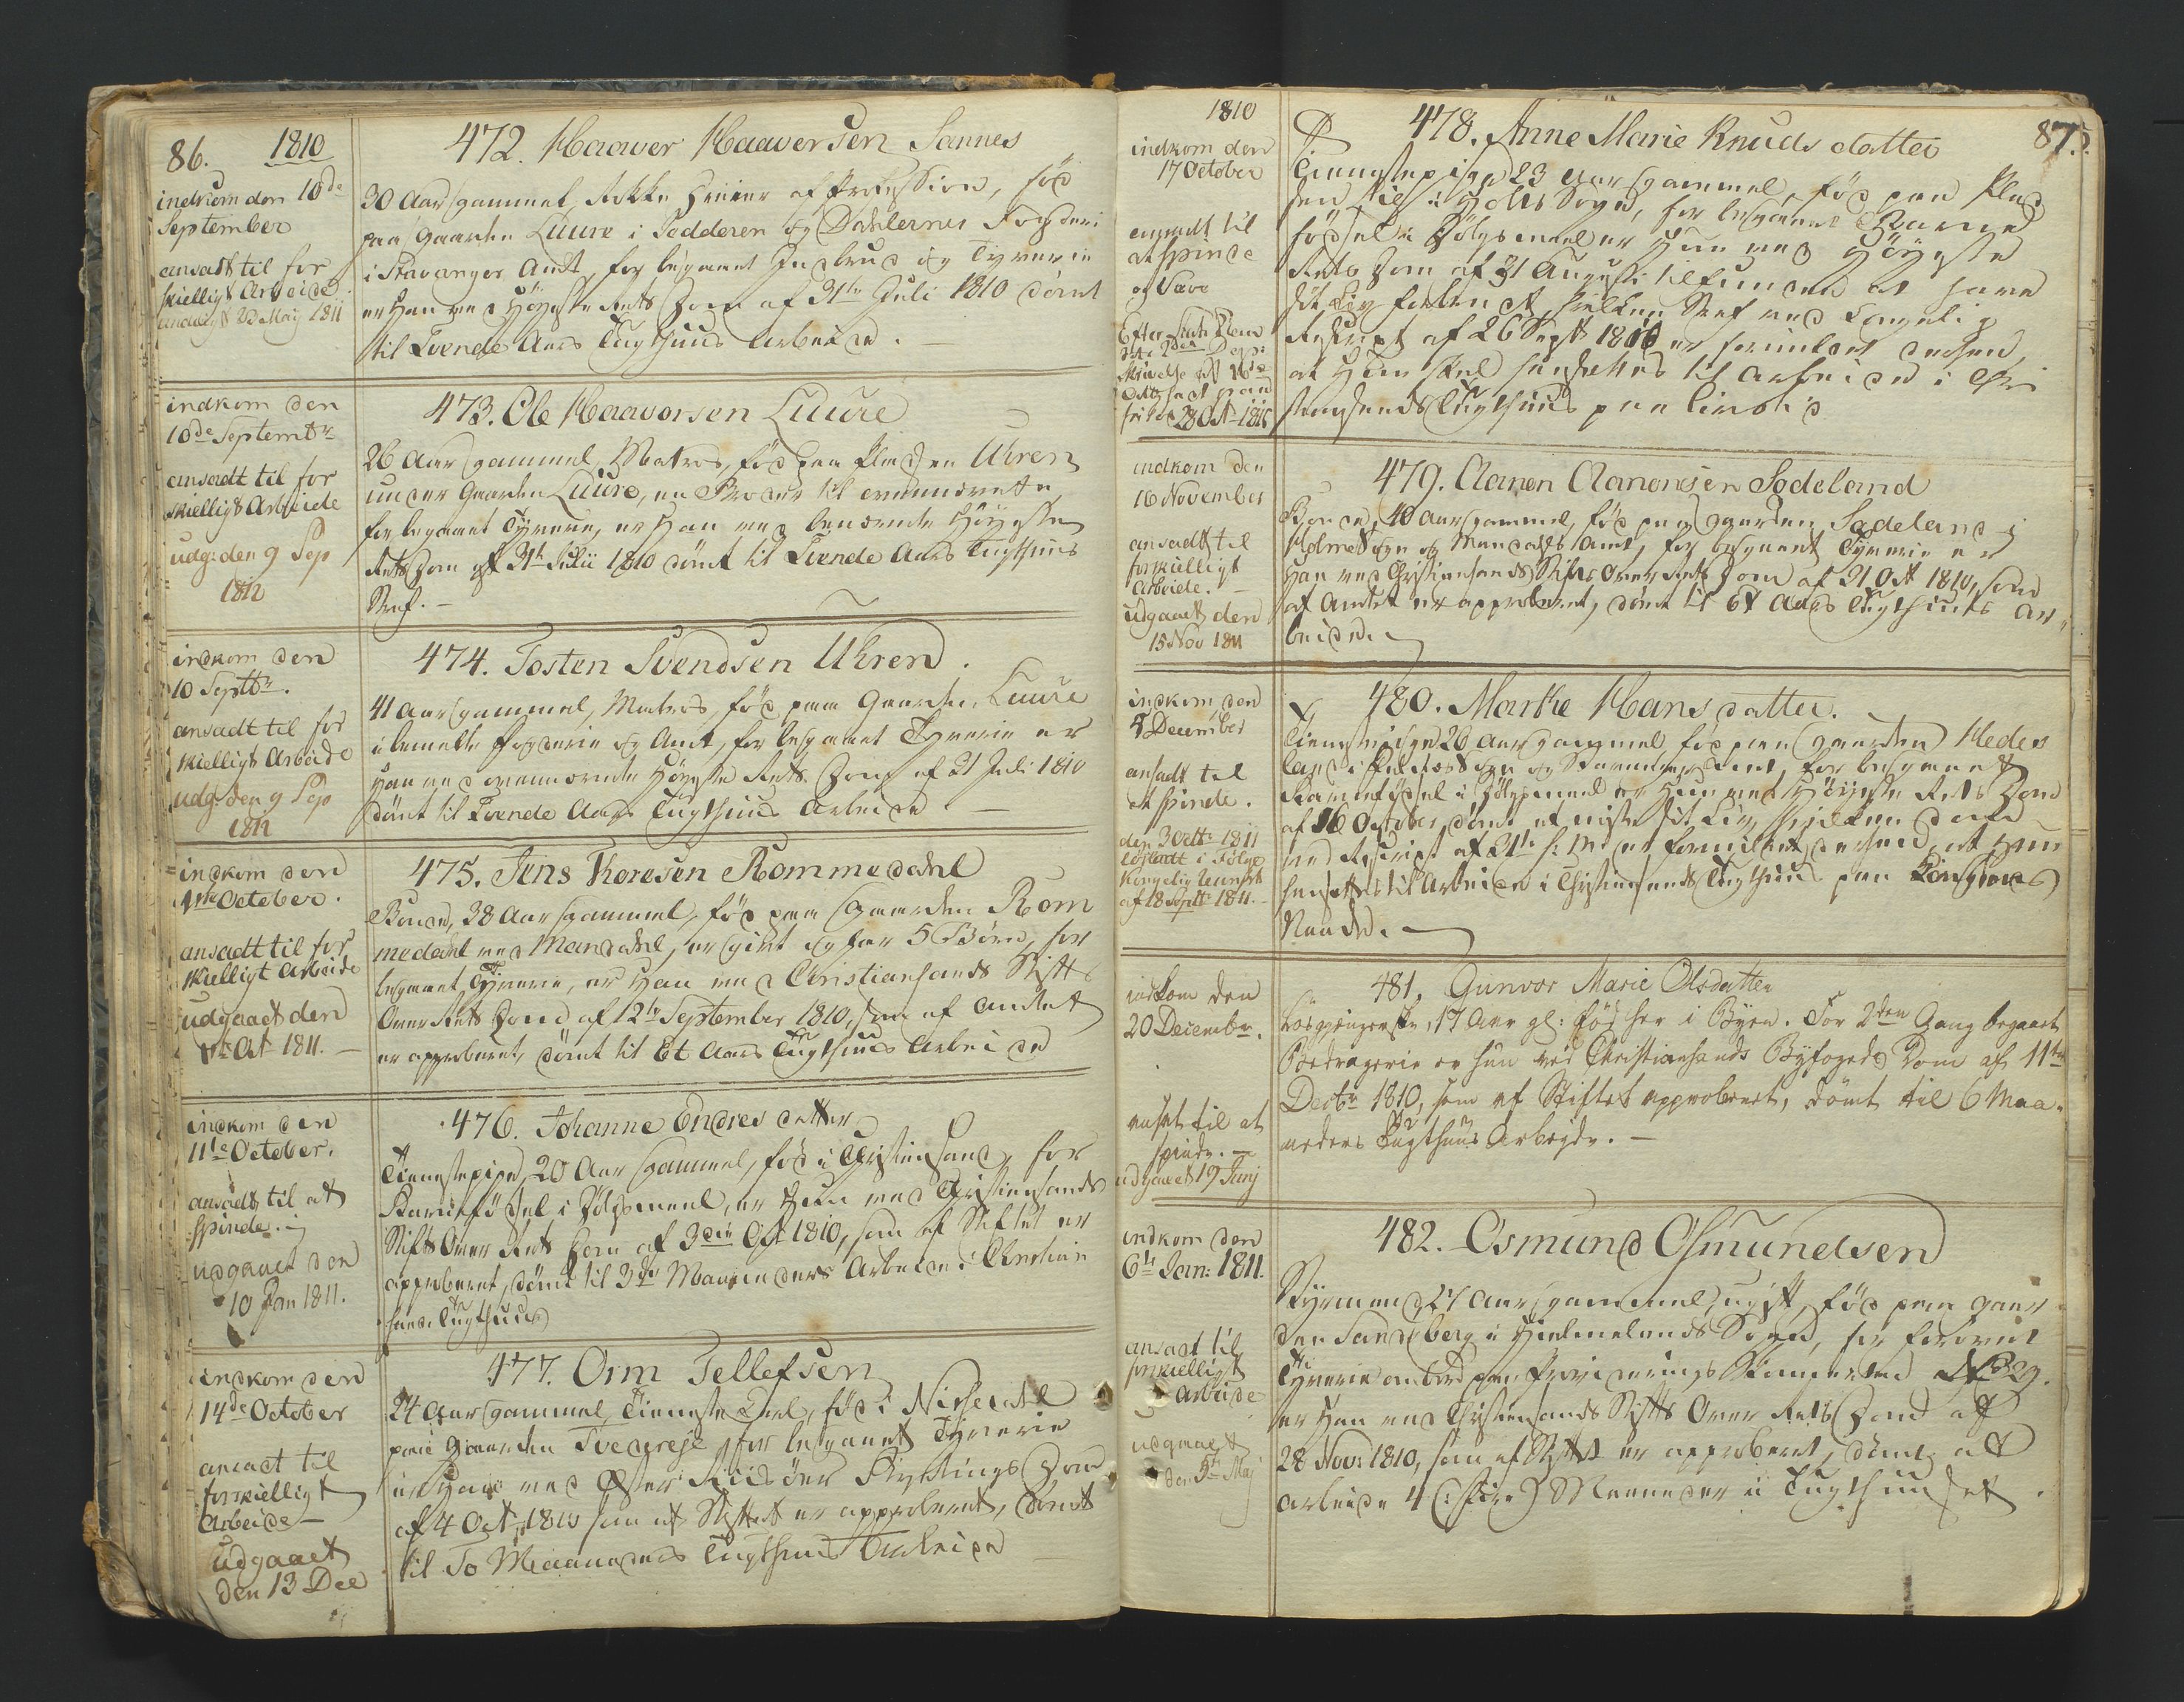 86.
1810
indkom den 10de
September
ansadt til for
skielligt Arbeide
472. Haaver Haaversen Sannes
30 Aar gammel, født
paa Gaarden Luure i Jædderen og Dahlernes Fogderi
i Stavanger Amt, for begaaet Indbrud og Tyverie
er Han ved Høyeste Rets Dom af 31te Juli 1810 dömt
til Tvende Aars Tugthuus Arbeide.
indkom den
10de Septembr
ansadt til for
skielligt Arbeide
udg: den 9 Sep
1812
473. Ole Haavorsen Luure
26 Aar gammel, Matros, föd paa Pladsen Uhren
under Gaarden Luure, en Broder til ovennævnte
for begaaet Tyverie, er Han ved benævnte Höyeste
Rets Dom af 31te Julii 1810 dömt til Tvende Aars Tugthuus
Straf.
indkom den
10 Septbr.
ansadt til for
skielligt Arbeide
udg: den 9 Sep
1812
474. Tosten Svendsen Uhren.
41 Aar gammel, Matros, föd paa Gaarden Luure
i bemelte Fogderie og Amt, for begaaet Tyverie er
Han ved ovennævnte Höyeste Rets Dom af 31 Juli 1810
dömt til Tvende Aars Tugthuus Arbeide.
indkom den
1ste October.
ansadt til for
skielligt Arbeide
udgaaet den
1te Oct 1811.
475. Jens Thoresen Rommedahl
Bonde, 38 Aar gammel, föd paa Gaarden Rom
medahl ved Mandahl, er gift og har 5 Börn, for
begaaet Tyverie, er Han ved Christiansands Stifts
Over Rets Dom af 12te September 1810, som af Amtet
er approberet, dömt til Et Aars Tugthuus Arbeide
indkom den
11te October.
ansadt til at
spinde.
udgaaet den
10 Jan 1811.
476. Johanne Endresdatter
Tienestepige, 20 Aar gammel, föd i Christiansand, for
Barnefödsel i Dölgsmaal, er Hun ved Christiansands
Stifts Over Rets Dom af 3die Oct 1810, som af Stiftet er
approberet, dömt til 3de Maaneders Arbeide i Christian
sands Tugthuus
indkom den
14de October
ansadt til
forskielligt
Arbeide
udgaaet
den 13 Dec
477. Orm Tellefsen
24 Aar gammel, Tieneste Karl, föd i Nissedahl
paa Gaarden for begaaet Tyverie
er Han ved Øster Riisöer Dom
af 4 Oct 1810 som af Stiftet er approberet, dömt
til To Maaneders Tugthuus Arbeide
1810
indkom den
17 October
ansadt til
at Spinde
og Væve
28 Oct 1815
87.
478. Anne Marie Knuds datter
Tienestepige 23 Aar gammel, föd paa Plad
sen i Holts Sogn, for begaaet Barne
födsel i Dölgsmaal er Hun ved Höyeste
Rets Dom af 31 August tilfunden at have
sit Liv forbrudt, hvilken Straf ved Kongelig
Rescript af 26 Sept 1810 er formildet derhen,
at Hun skal hensættes til Arbeide i Chri
stiansands Tugthuus paa Livstid
indkom den
16 November
ansadt til
forskielligt
Arbeide.
udgaaet den
15 Nov 1811
479. Aanen Aanensen Sodeland
Bonde, 40 Aar gammel, föd paa Gaarden Sodeland i
Holme Sogn og Mandahls Amt, for begaaet Tyverie er
Han ved Christiansands Stifts Over Rets Dom af 31 Oct 1810, som
af Amtet er approberet, dömt til Et Aars Tugthuus Ar-
beide.
indkom den
5 December
ansadt til
at spinde.
den 3 Octbr 1811
løsladt i Følge
Kongelig
af 18 Septbr 1811.
480. Marthe Hansdatter.
Tienestepige 26 Aar gammel föd paa Gaarden Hedes
land i Sogn og Stavanger Amt, for begaaet
Barnefödsel i Dölgsmaal er Hun ved Höyeste Rets Dom
af 16 October dömt at miste sit Liv, hvilken Dom
ved Rescript af 31te f: M: er formildet derhen, at Hun
hensættes til Arbeide i Christiansands Tugthuus paa Kongens
Naade.
indkom den
20 Decembr.
ansat til at
spinde.
udgaaet 19 Junj
481. Gunvor Marie Olsdatter
Løsgjengerske, 17 Aar gl: föd her i Byen. For 2den Gang begaaet
Bedragerie er hun ved Christiansands Byfogeds Dom af 11te
Decbr 1810, som af Stiftet approberet, dömt til 6 Maa-
neders Tugthuus Arbeyde.
indkom den
6te Jan: 1811.
ansat til
forskielligt
Arbeide
udgaaet
den 5te Maj
482. Osmund Osmundsen
Styrmand, 27 Aar gammel, ugift, föd paa Gaar
den Sandsberg i Hielmelands Sogn, for forövet
Tyverie ombord paa
er Han ved Christiansands Stifts Over Rets Dom af
28 Nov: 1810, som af Stiftet er approberet, dömt at
arbeide 4 (: fire:) Maaneder i Tugthuuset.